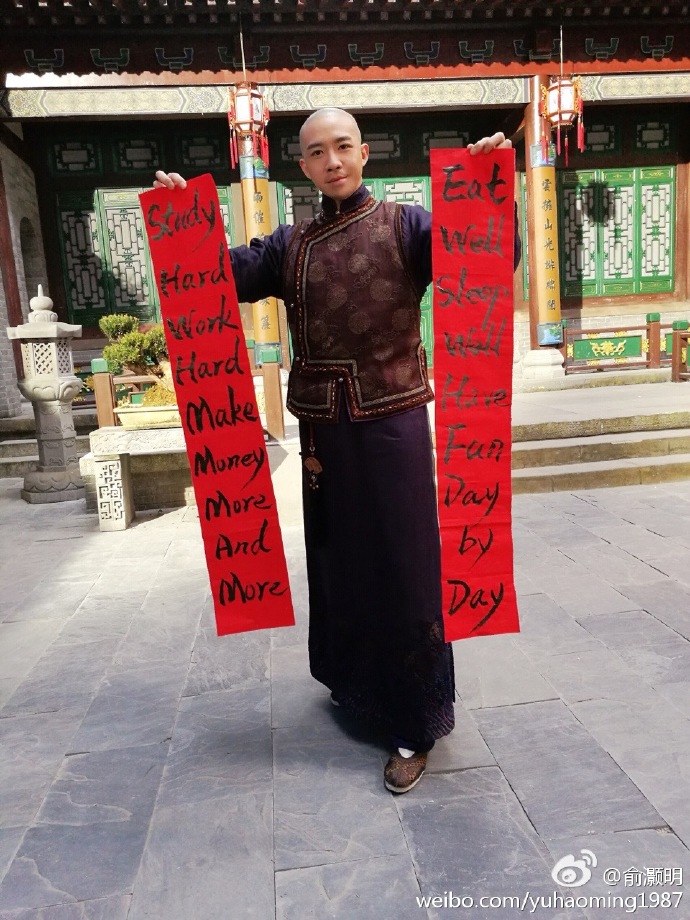 Study
Hard
Work
Hard
Make
Money
More
And
More
Eat
Well
Sleep
Well
Have
Fun
Day
by
Day
@俞灏明
weibo.com/yuhaoming1987